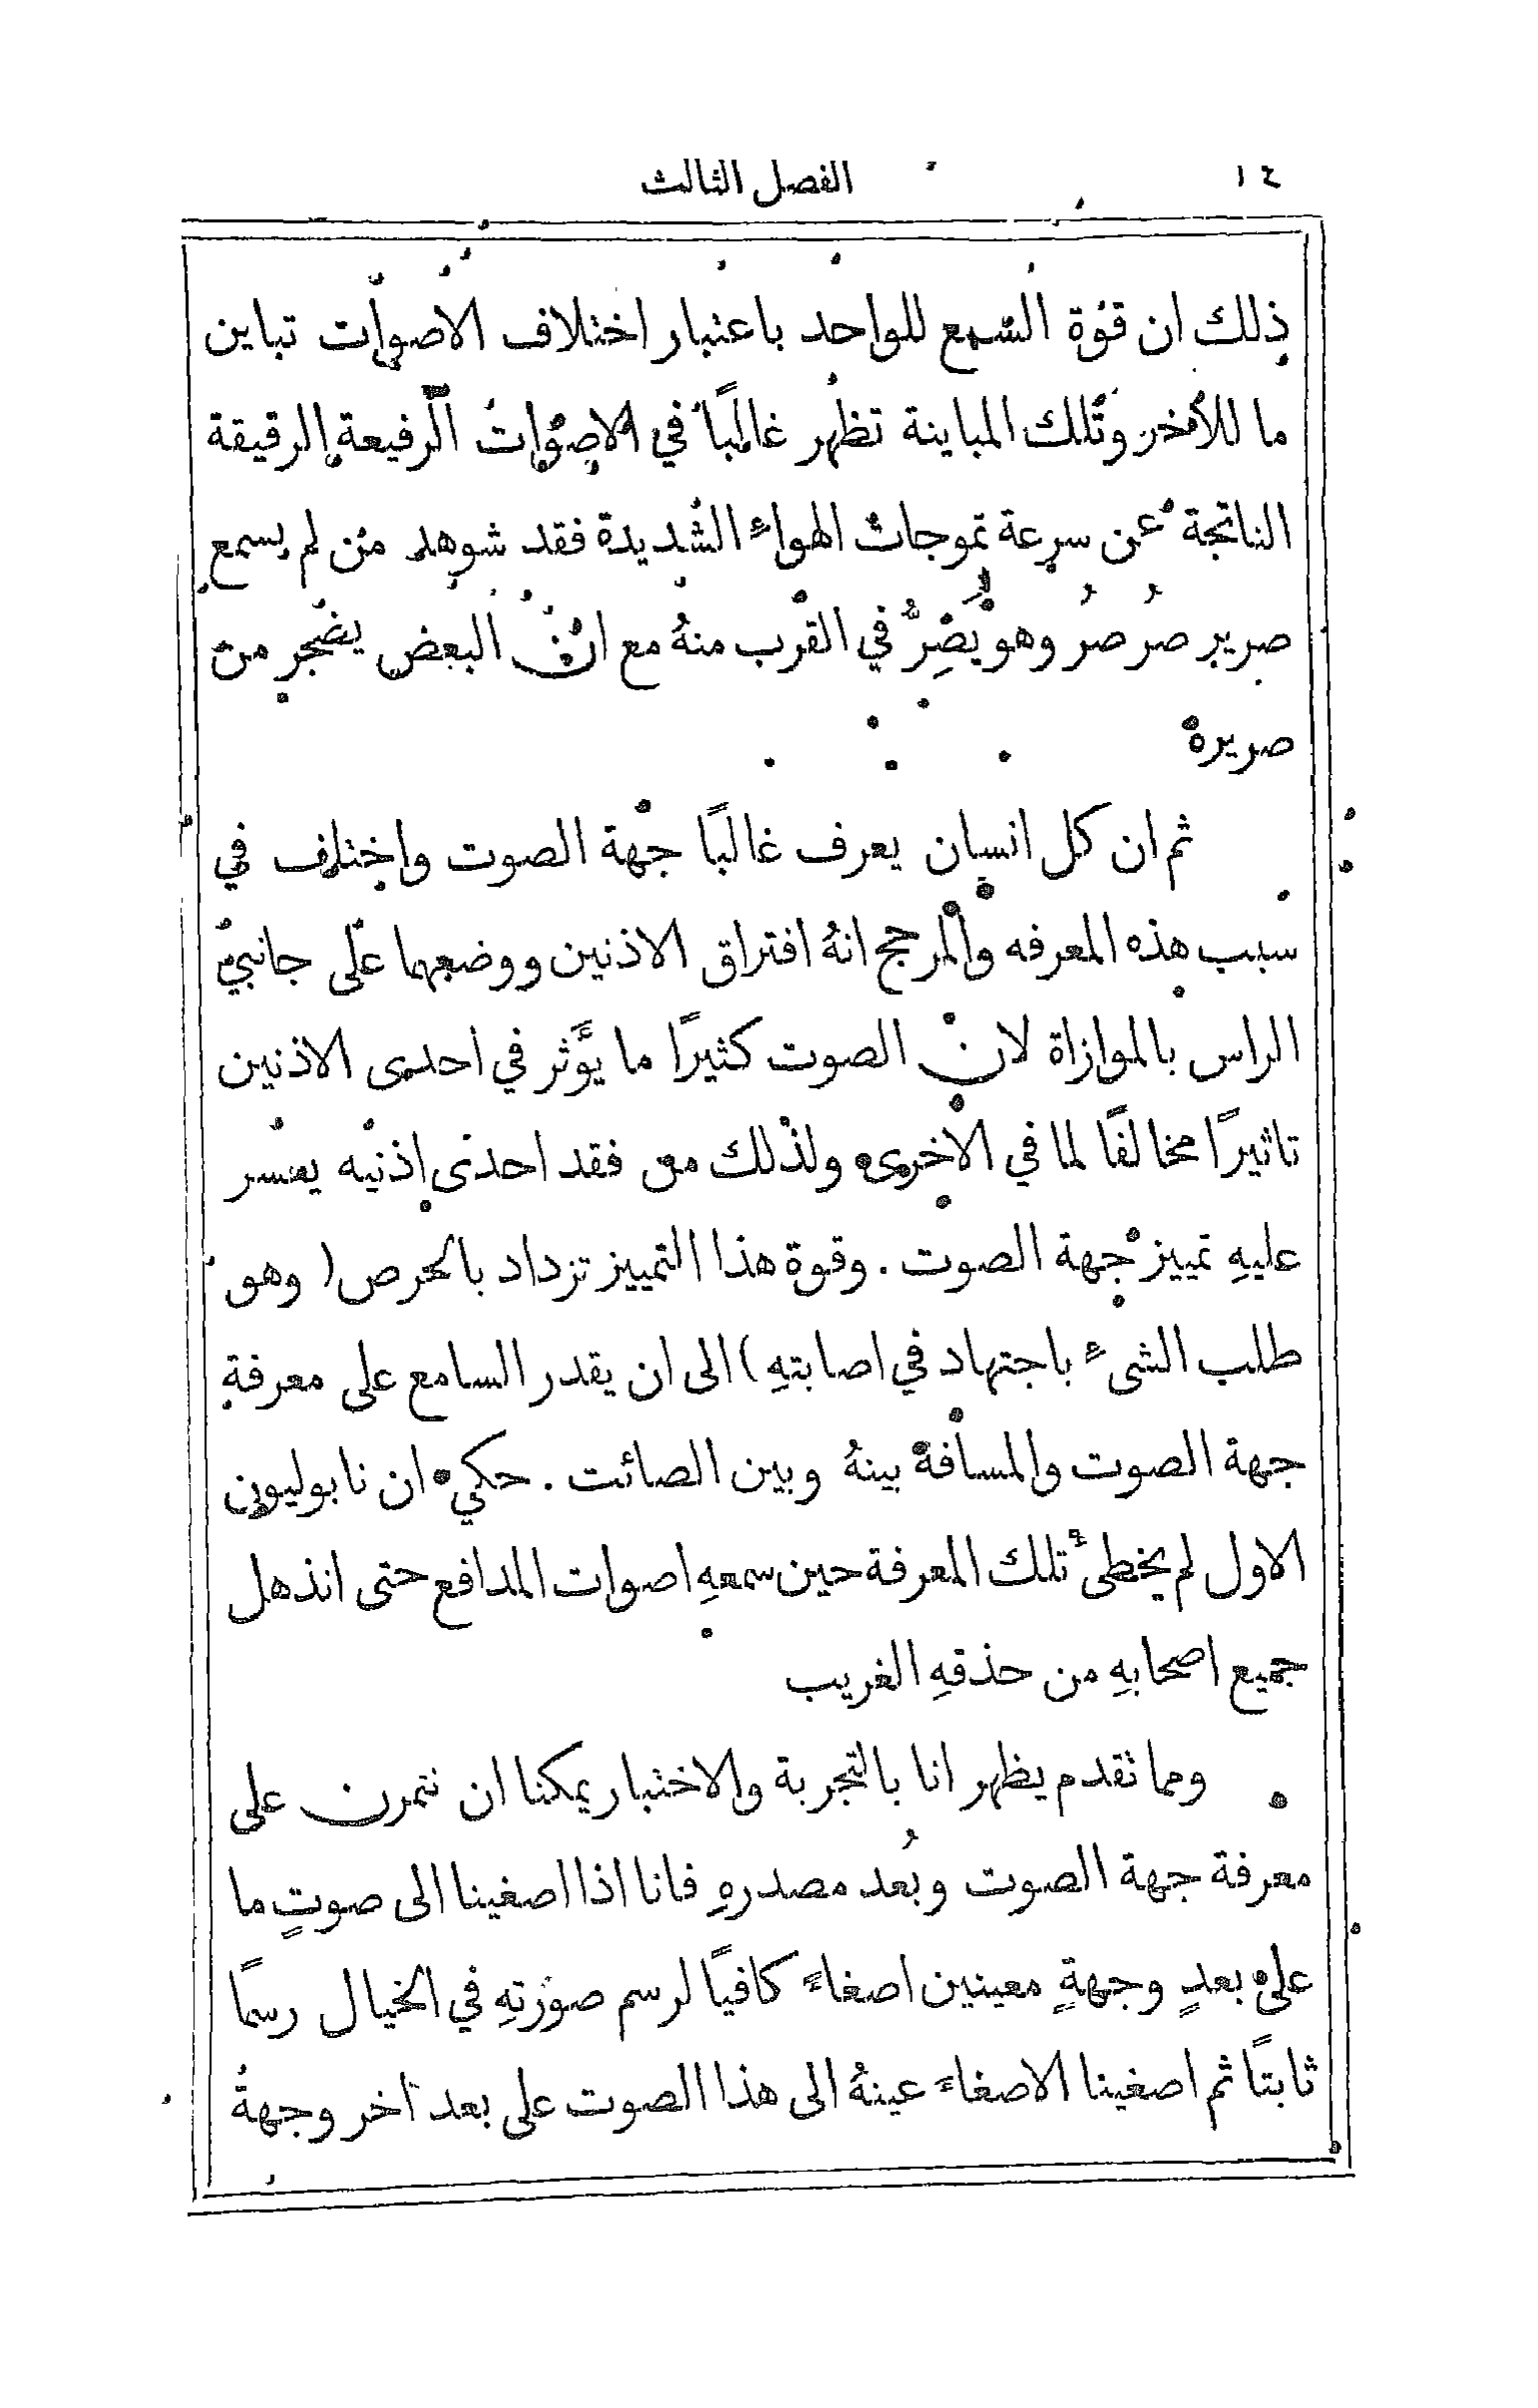 ١٤ الفصل الثالث
ذلك ان قوة السمع للواحد باعتبار اختلاف الاصوات تباين
ما للآخر وتلك المباينة تظهر غالبًا في الاصوات الرفيعة الرقيقة
الناتجة عن سرعة تموجات الهواء الشديدة فقد شوهد من لم يسمع
صرير صرصر وهو يُصِرُّ في القرب منهُ مع ان البعض يضجر من
صريره
ثم ان كل انسان يعرف غالبًا جهة الصوت واختلف في
سبب هذه المعرفه والمرجح انهُ افتراق الاذنين ووضعهما على جانبي
الراس بالموازاة لان الصوت كثيرًا ما يؤَثر في احدى الاذنين
تاثيرًا مخالفًا لما في الاخرى ولذلك من فقد احدى اذنيه يعسر
عليهِ تمييز جهة الصوت . وقوة هذا التمييز تزداد بالحرص ( وهو
طلب الشيء باجتهاد في اصابتهِ ) الى ان يقدر السامع على معرفة
جهة الصوت والمسافة بينهُ وبين الصائت . حكي ان نابوليون
الاول لم يخطئ تلك المعرفة حين سمعهِ اصوات المدافع حتى انذهل
جميع اصحابهِ من حذقهِ الغريب
ومما نقدم يظهر انا بالتجربة والاختبار يمكنا ان نتمرن على
معرفة جهة الصوت وبُعد مصدرهِ فانا اذا اصغينا الى صوتٍ ما
على بعدٍ وجهةٍ معينين اصغاءً كافيًا لرسم صورتهِ في الخيال رسمًا
ثابتًا ثم اصغينا الاصغاء عينهُ الى هذا الصوت على بعد آخر وجهة